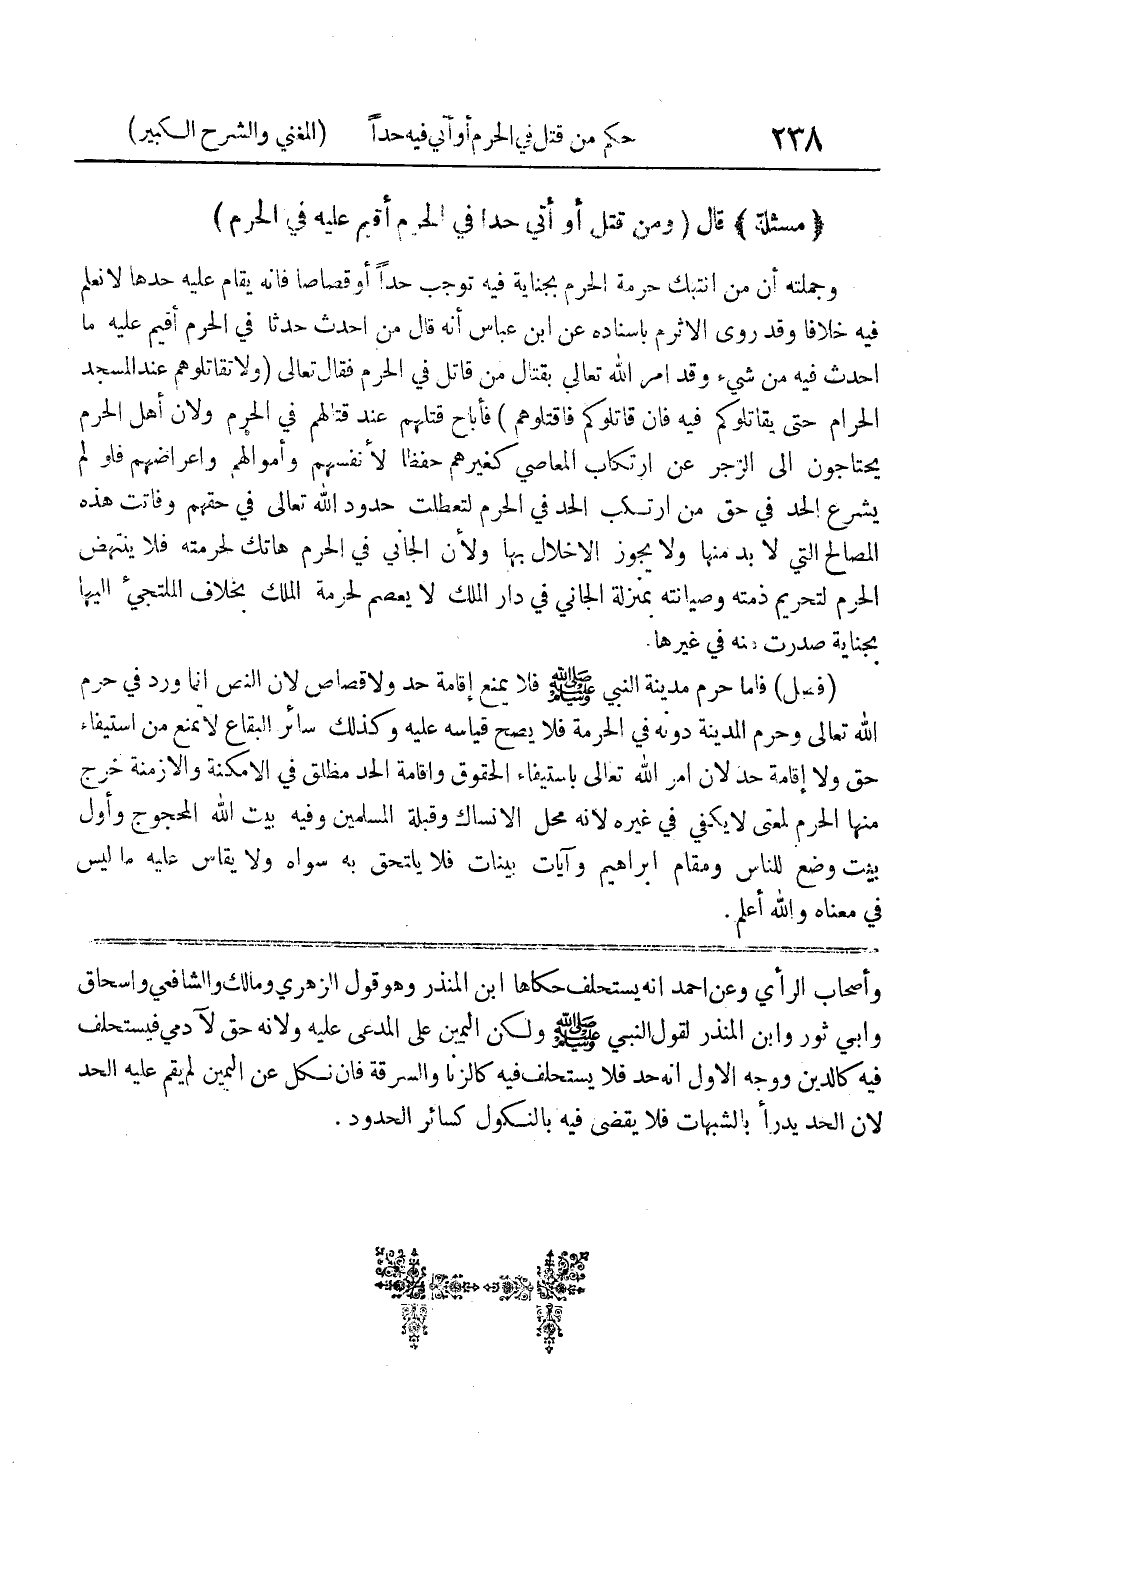 ٢٣٨ حكم من قتل في الحرم أو أتى فيه حداً (المغني والشرح الكبير)
﴿ مسئلة ﴾ قال ( ومن قتل أو أتى حدا في الحرم أقيم عليه في الحرم )
وجملته أن من انتهك حرمة الحرم بجناية فيه توجب حداً أو قصاصا فانه يقام عليه حدها لا نعلم
فيه خلافا وقد روى الاثرم باسناده عن ابن عباس أنه قال من احدث حدثا في الحرم أقيم عليه ما
احدث فيه من شيء وقد امر الله تعالى بقتال من قاتل في الحرم فقال تعالى (ولا تقاتلوهم عند المسجد
الحرام حتى يقاتلوكم فيه فان قاتلوكم فاقتلوهم ) فأباح قتلهم عند قتالهم في الحرم ولان أهل الحرم
يحتاجون الى الزجر عن ارتكاب المعاصي كغيرهم حفظا لأنفسهم وأموالهم واعراضهم فلو لم
يشرع الحد في حق من ارتكب الحد في الحرم لتعطلت حدود الله تعالى في حقهم وفاتت هذه
المصالح التي لا بد منها ولا يجوز الاخلال بها ولأن الجاني في الحرم هاتك لحرمته فلا ينتهض
الحرم لتحريم ذمته وصيانته بمنزلة الجاني في دار الملك لا يعصم لحرمة الملك بخلاف الملتجئ اليها
بجناية صدرت منه في غيرها.
(فصل) فاما حرم مدينة النبي ﷺ فلا يمنع إقامة حد ولا قصاص لان النص انما ورد في حرم
الله تعالى وحرم المدينة دونه في الحرمة فلا يصح قياسه عليه وكذلك سائر البقاع لا تمنع من استيفاء
حق ولا إقامة حد لان امر الله تعالى باستيفاء الحقوق واقامة الحد مطلق في الامكنة والازمنة خرج
منها الحرم لمعنى لا يكفي في غيره لانه محل الانساك وقبلة المسلمين وفيه بيت الله المحجوج وأول
بيت وضع للناس ومقام ابراهيم وآيات بينات فلا يلتحق به سواه ولا يقاس عليه ما ليس
في معناه والله أعلم .
وأصحاب الرأي وعن احمد انه يستحلف حكاها ابن المنذر وهو قول الزهري ومالك والشافعي واسحاق
وابي ثور وابن المنذر لقول النبي ﷺ ولكن اليمين على المدعى عليه ولانه حق لآدمي فيستحلف
فيه كالدين ووجه الاول انه حد فلا يستحلف فيه كالزنا والسرقة فان نكل عن اليمين لم يقم عليه الحد
لان الحد يدرأ بالشبهات فلا يقضى فيه بالنكول كسائر الحدود .